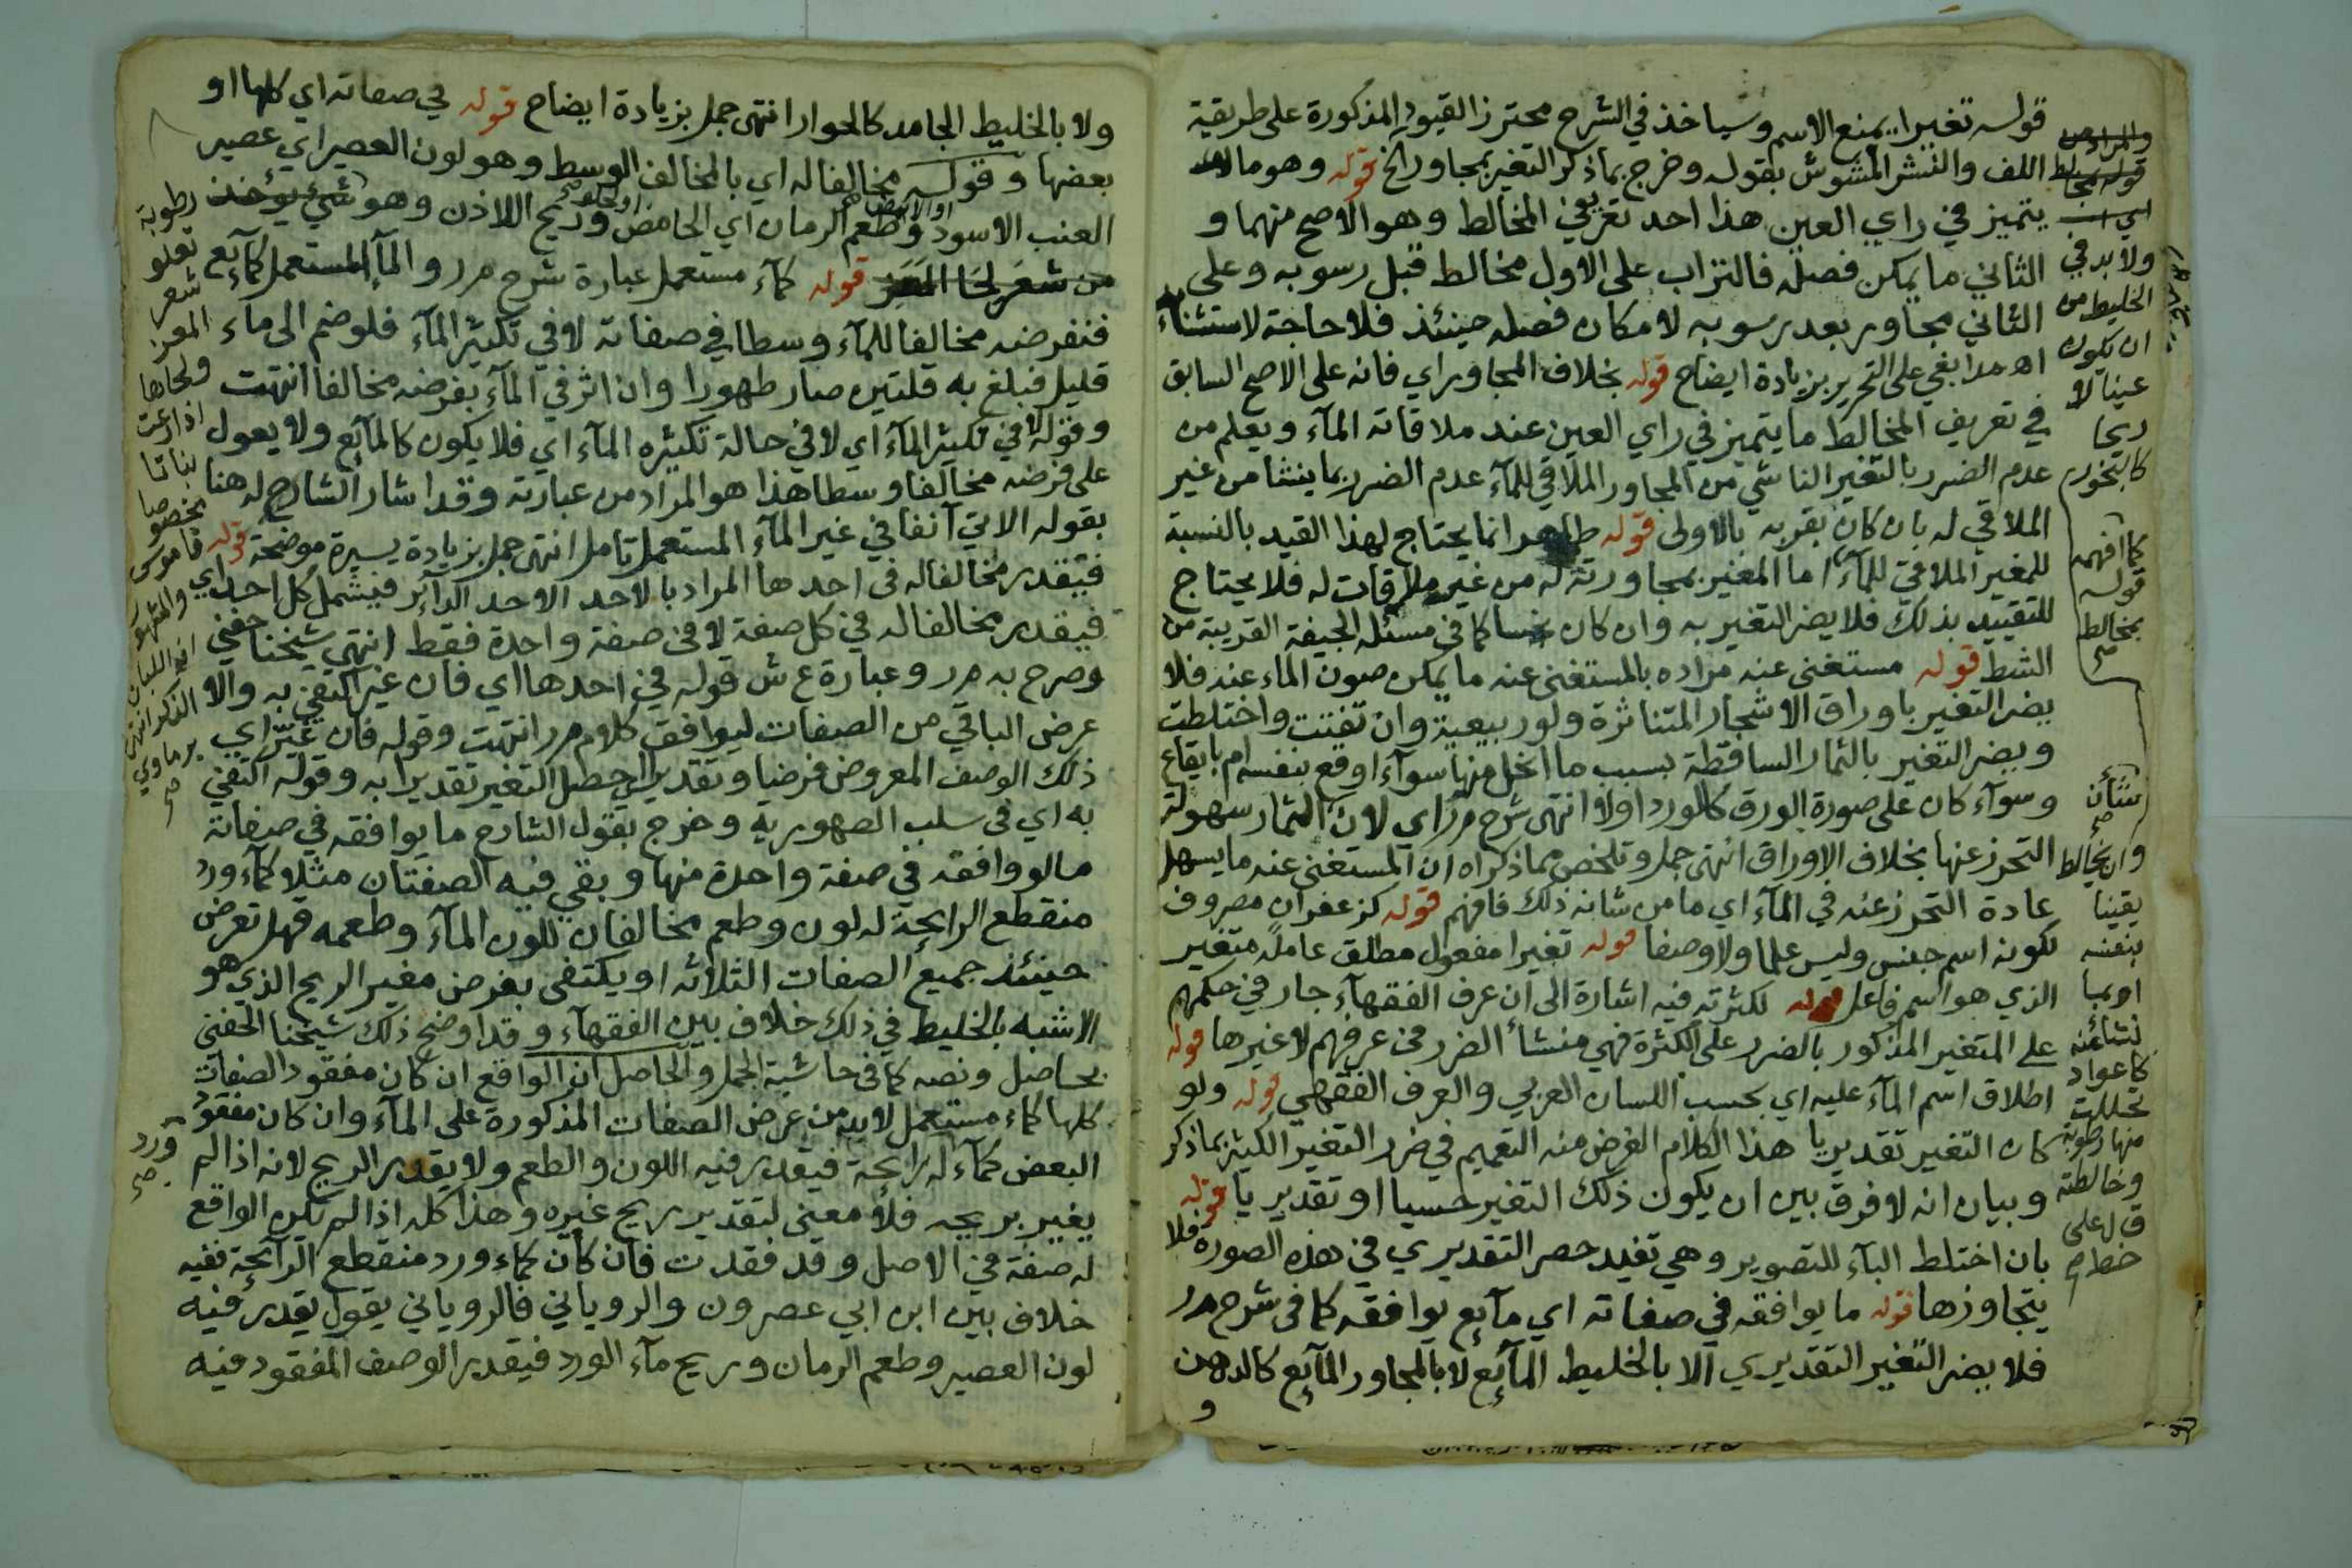 قوله تغيرا يمنع الاسم وسياخذ في الشرح محترز القيود المذكورة على طريقة
اللف والنشر المشوش بقوله وخرج بما ذكر التغير بمجاور الخ قوله وهو ما لا
يتميز في راي العين هذا احد تعريفي المخالط وهو الاصح منهما و
الثاني ما يمكن فصله فالتراب على الاول مخالط قبل رسوبه وعلى
الثاني مجاور بعد رسوبه لامكان فصله حينئذ فلا حاجة لاستثناء
اه مدابغي على التحرير بزيادة ايضاح قوله بخلاف المجاور اي فانه على الاصح السابق
في تعريف المخالط ما يتميز في راي العين عند ملاقاته المآء ويعلم من
عدم الضرر بالتغير الناشي من المجاور الملاقي للمآء عدم الضرر بما ينشا من غير
الملاقي له بان كان بقربه بالاولى قوله طاهر انما يحتاج لهذا القيد بالنسبة
للمغير الملاقي للمآء اما المغير بمجاورته له من غير ملاقات له فلا يحتاج
للتقييد بذلك فلا يضر التغير به وان كان نجسا كما في مسئله الجيفة القريبة من
الشط قوله مستغنى عنه مراده بالمستغنى عنه ما يمكن صون الماء عنه فلا
يضر التغير باوراق الاشجار المتناثرة ولو ربيعية وان تفتت واختلطت
ويضر التغير بالثمار الساقطة بسبب ما انحل منها سوآء اوقع بنفسه ام بايقاع
وسوآء كان على صورة الورق كالورد اولا انتهى شرح مر اي لان الثمار سهولة
التحرز عنها بخلاف الاوراق انتهى جمل وتلخص مما ذكراه ان المستغنى عنه ما يسهل
عادة التحرز عنه في المآء اي ما من شانه ذلك فافهم قوله كزعفران مصروف
لكونه اسم جنس وليس علما ولا وصفا قوله تغيرا مفعول مطلق عامله متغير
الذي هو اسم فاعل قوله لكثرته فيه اشارة الى ان عرف الفقهآء جار في حكمهم
على المتغير المذكور بالضرر على الكثرة فهي منشأ الضرر في عرفهم لا غيرها قوله
اطلاق اسم المآء عليه اي بحسب اللسان العربي والعرف الفقهي قوله ولو
كان التغير تقديريا هذا الكلام الغرض منه التعميم في ضرر التغير الكثير بما ذكر
وبيان انه لا فرق بين ان يكون ذلك التغير حسيا او تقديريا قوله
بان اختلط البآء للتصوير وهي تفيد حصر التقديري في هذه الصورة فلا
يتجاوزها قوله ما يوافقه في صفاته اي مآيع يوافقه كما في شرح مر
فلا يضر التغير التقديري الا بالخليط المآيع لا بالمجاور المآيع كالدهن
و
ولا بد في
الخليط من
ان يكون
عينا لا
ريحا
كالبخور
كما افهمه
قوله
بمخالط
صح
وان يخالط
يقينا
بنفسه
او بما
نشا عنه
كاعواد
تحللت
منها رطوبة
وخالطته
ق ل على
خط
ولا بالخليط الجامد كالحوار انتهى جمل بزيادة ايضاح قوله في صفاته اي كلها او
بعضها وقوله مخالفا له اي بالمخالف الوسط وهو لون العصير اي عصير
العنب الاسود وطعم الرمان اي الحامض وريح اللاذن وهو شيء يوخذ
من شعر لحا المعز قوله كمآء مستعمل عبارة شرح مر والمآ المستعمل كمآيع
فنفرضه مخالفا للمآء وسطا في صفاته لا في تكثير المآء فلو ضم الى ماء
قليل فبلغ به قلتين صار طهورا وان اثر في المآء بفرضه مخالفا انتهت
وقوله لا في تكثير المآء اي لا في حالة تكثيره المآء اي فلا يكون كالمآيع ولا يعول
على فرضه مخالفا وسطا هذا هو المراد من عبارته وقد اشار الشارح له هنا
بقوله الاتي آنفا في غير المآء المستعمل تامل انتهى جمل بزيادة يسيرة موضحة قوله
فيقدر مخالفا له في احدها المراد بالاحد الاحد الدآئر فيشمل كل احد اي
فيقدر مخالفا له في كل صفة لا في صفة واحدة فقط انتهى شيخنا حفني
وصرح به مر وعبارة ع ش قوله في احدها اي فان غير اكتفي به والا
عرض الباقي من الصفات ليوافق كلام مر انتهت وقوله فان غير اي
ذلك الوصف المعروض فرضيا وتقديرا حصل التغير تقديرا به وقوله اكتفي
به اي في سلب الطهورية وخرج بقول الشارح ما يوافقه في صفاته
ما لو وافقه في صفة واحدة منها وبقي فيه الصفتان مثلا كمآء ورد
منقطع الرايحة له لون وطعم مخالفان للون المآء وطعمه فهل تعرض
حينئذ جميع الصفات الثلاثه او يكتفى بفرض مغير الريح الذي هو
الاشبه بالخليط في ذلك خلاف بين الفقهآء وقد اوضح ذلك شيخنا الحفني
بحاصل ونصه كما في حاشية الجمل والحاصل ان الواقع ان كان مفقود الصفات
كلها كماء مستعمل لابد من عرض الصفات المذكورة على المآء وان كان مفقود
البعض كمآء له رايحة فيقدر فيه اللون والطعم ولا يقدر الريح لانه اذا لم
يغير بريحه فلا معنى لتقدير ريح غيره وهذا كله اذا لم تكن الواقع
له صفة في الاصل وقد فقدت فان كان كماء ورد منقطع الرآئحة ففيه
خلاف بين ابن ابي عصرون والروياني فالروياني يقول يقدر فيه
لون العصير وطعم الرمان وريح مآء الورد فيقدر الوصف المفقود فيه
رطوبة
تعلو
شعر
المعز
ولحاها
اذا رعت
نباتا
مخصوصا
قاموس
والمشهور
انه اللبان
الذكر انتهى
برماوي
صح
ورد
صح